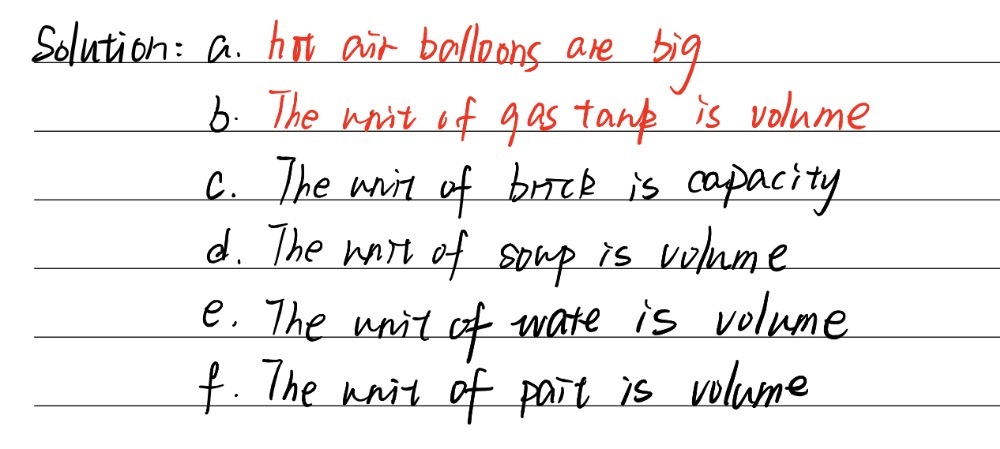 Solution: a. hot air balloons are big
b. The unit of gas tank is volume
c. The unit of brick is capacity
d. The unit of soup is volume
e. The unit of wate is volume
f. The unit of pait is volume